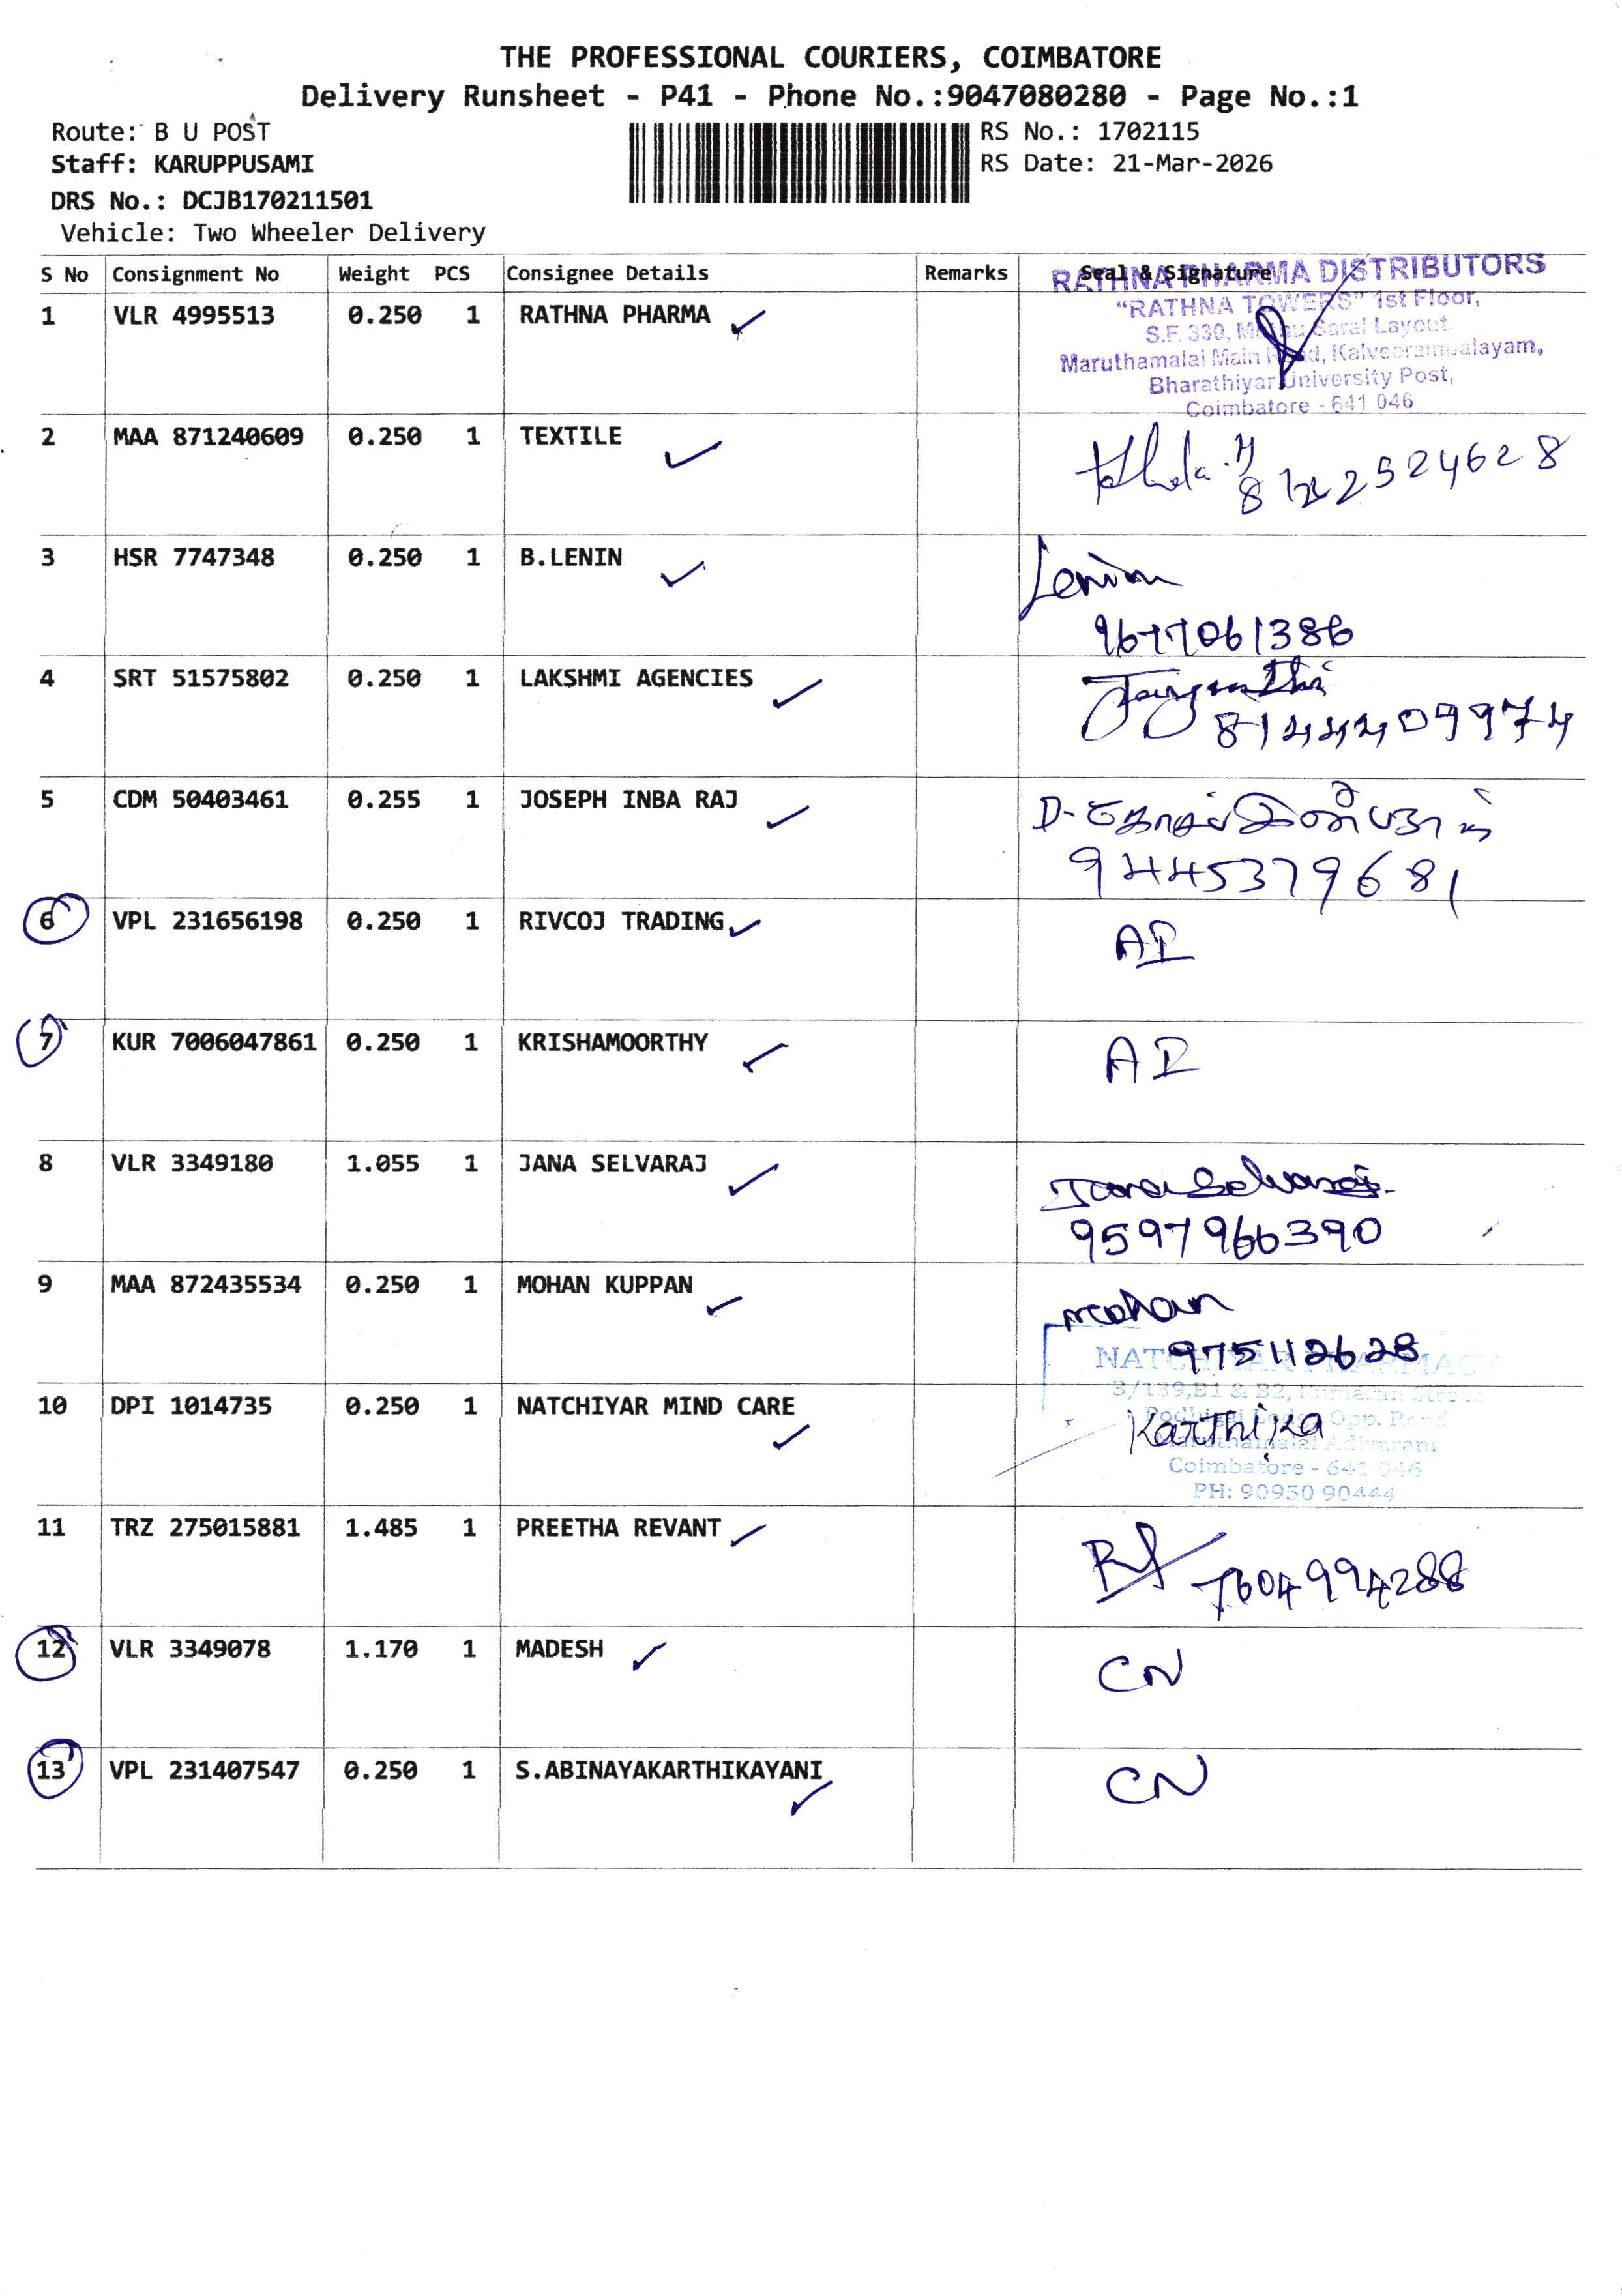 THE PROFESSIONAL COURIERS, COIMBATORE
Delivery Runsheet - P41 - Phone No.:9047080280 - Page No.:1
Route: B U POST
Staff: KARUPPUSAMI
DRS No.: DCJB170211501
Vehicle: Two Wheeler Delivery
RS No.: 1702115
RS Date: 21-Mar-2026
S No Consignment No Weight PCS Consignee Details Remarks Seal & Signature
RATHNA PHARMA DISTRIBUTORS
1 VLR 4995513 0.250 1 RATHNA PHARMA
"RATHNA TOWERS" 1st Floor,
S.F. 339, Layout
Maruthamalai Main Road,
Bharathiyar University Post,
Coimbatore - 641 046
2 MAA 871240609 0.250 1 TEXTILE
3 HSR 7747348 0.250 1 B.LENIN
Lenin
9677061386
4 SRT 51575802 0.250 1 LAKSHMI AGENCIES
8144409974
5 CDM 50403461 0.255 1 JOSEPH INBA RAJ
9445379681
6 VPL 231656198 0.250 1 RIVCOJ TRADING
7 KUR 7006047861 0.250 1 KRISHAMOORTHY
8 VLR 3349180 1.055 1 JANA SELVARAJ
Jana Selvaraj
9597966390
9 MAA 872435534 0.250 1 MOHAN KUPPAN
mohan
NATCHIYAR PHARMACY
975112628
10 DPI 1014735 0.250 1 NATCHIYAR MIND CARE
Karthika
Maruthamalai Adivaram
Coimbatore - 641 046
PH: 90950 90444
11 TRZ 275015881 1.485 1 PREETHA REVANT
7604994288
12 VLR 3349078 1.170 1 MADESH
CN
13 VPL 231407547 0.250 1 S.ABINAYAKARTHIKAYANI
CN